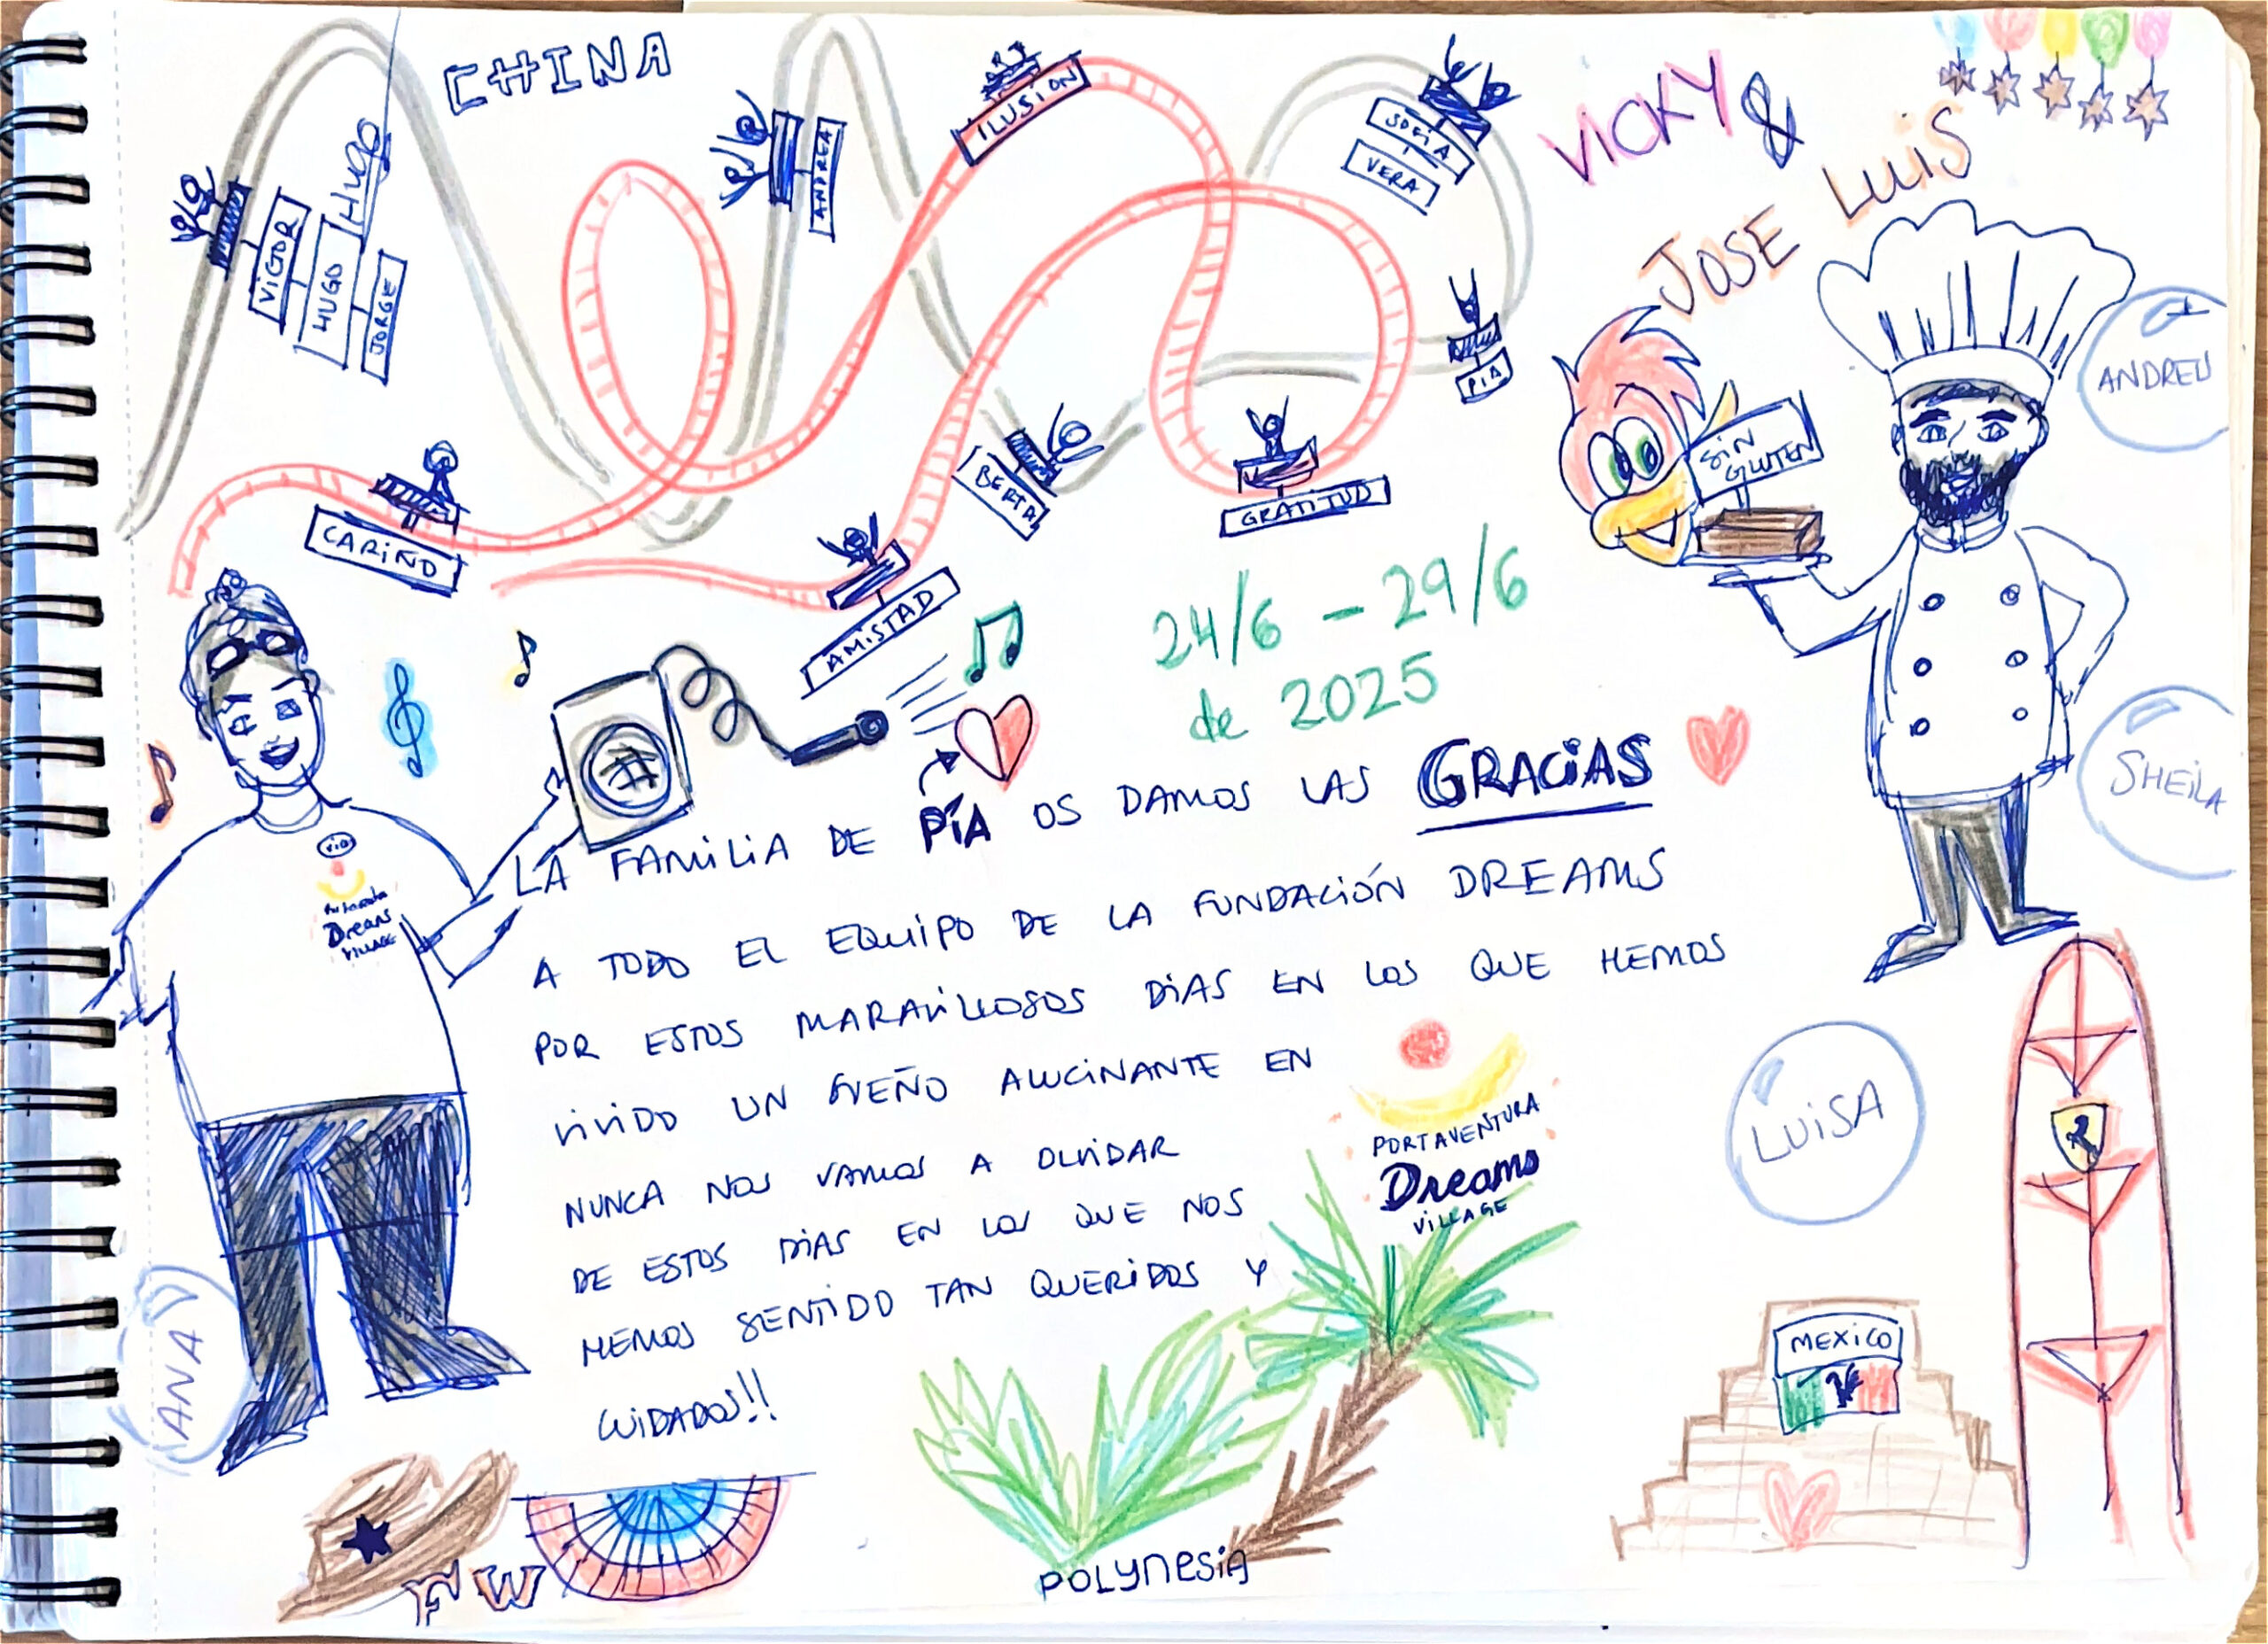 CHINA
VICKY &
JOSE LUIS
ILUSION
ANDREA
SOFIA
VERA
VIGOR
HUGO
HUGO
JORGE
PIA
ANDREU
SIN
GLUTEN
BERTA
GRATITUD
CARIÑO
AMISTAD
24/6 - 29/6
de 2025
SHEILA
LA FAMILIA DE PÍA OS DAMOS LAS GRACIAS
A TODO EL EQUIPO DE LA FUNDACIÓN DREAMS
POR ESTOS MARAVILLOSOS DIAS EN LOS QUE HEMOS
VIVIDO UN SUEÑO ALUCINANTE EN
PORTAVENTURA
Dreams
VILLAGE
NUNCA NOS VAMOS A OLVIDAR
DE ESTOS DIAS EN LOS QUE NOS
HEMOS SENTIDO TAN QUERIDOS Y
CUIDADOS!!
Dreams
VILLAGE
LUISA
ANA
MEXICO
FW
POLYNESIA